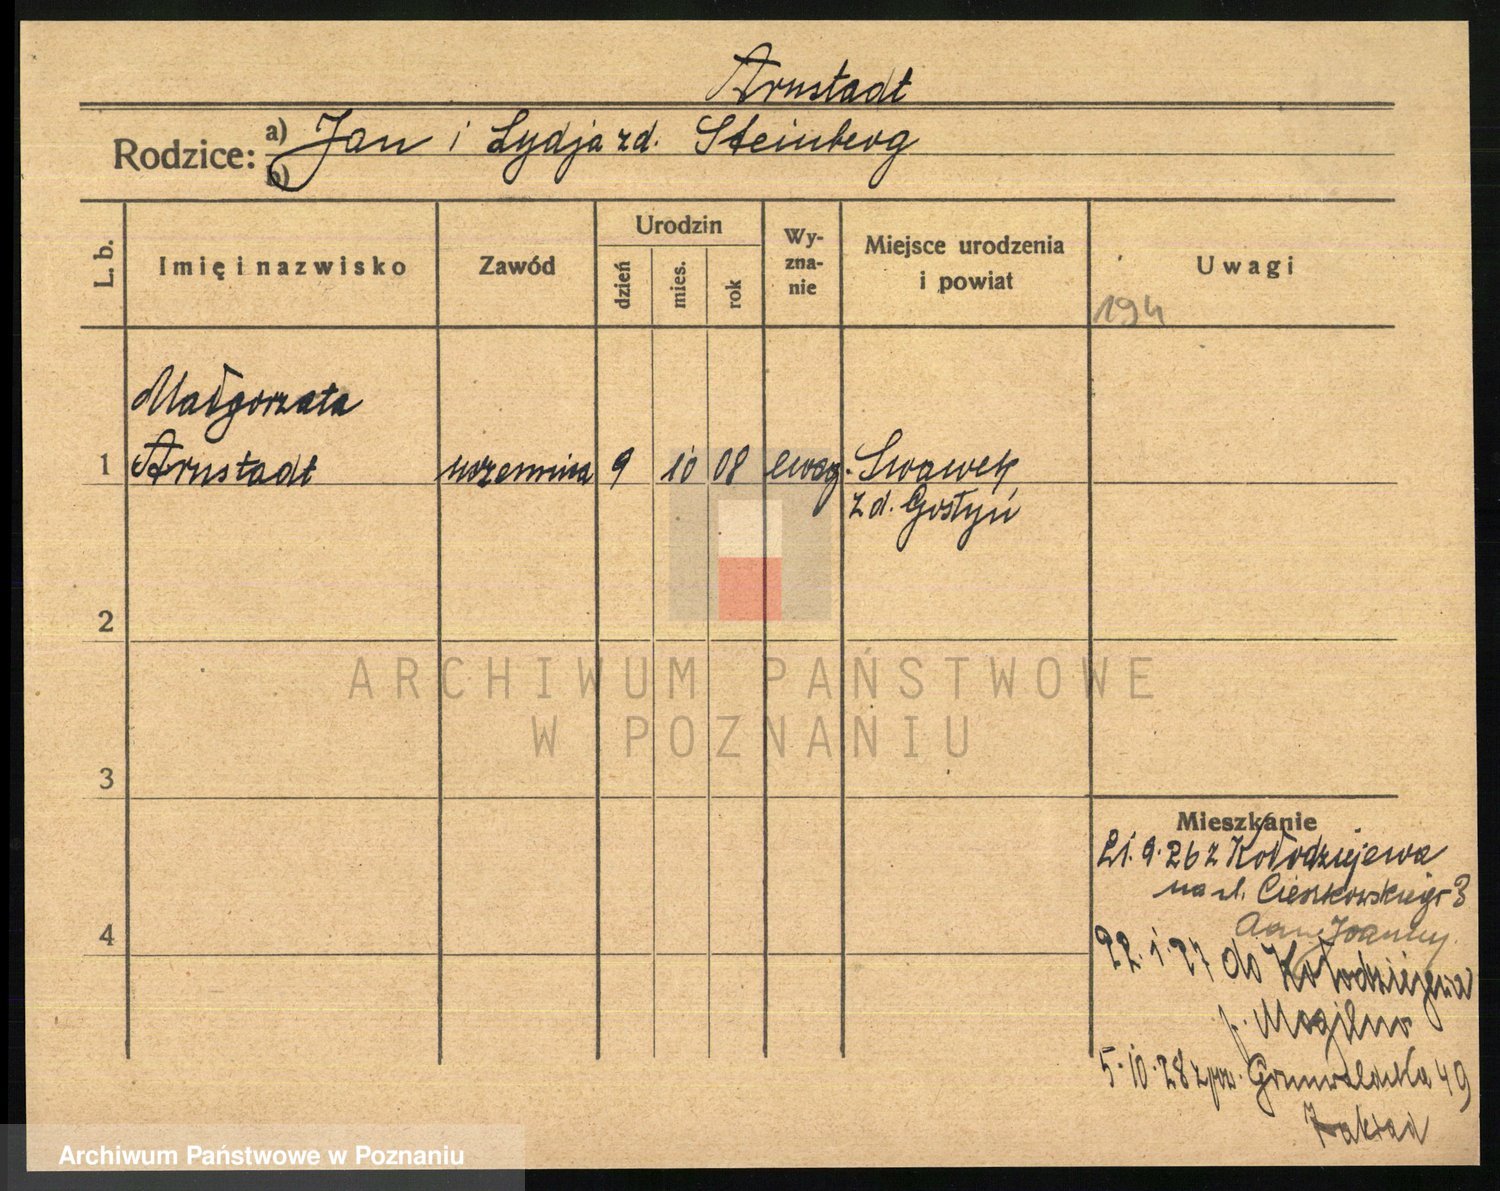 Arnstadt
Rodzice: a) Jan i Lydja zd. Steinberg
b)
L. b.
Imię i nazwisko
Zawód
Urodzin
dzień
mies.
rok
Wy-
zna-
nie
Miejsce urodzenia
i powiat
Uwagi
194
Małgorzata
1 Arnstadt uczennica 9 10 08 ewag.
zd. Gostyń
2
ARCHIWUM PAŃSTWOWE
W POZNANIU
3
Mieszkanie
21.9.26 z Kołodziejewa
na ul. Cieszkowskiego 3
4
22.1.27 do Kołodziejewa
p. Mogilno
5.10.28 z pow. Grunwaldzka 49
Zakład
Archiwum Państwowe w Poznaniu